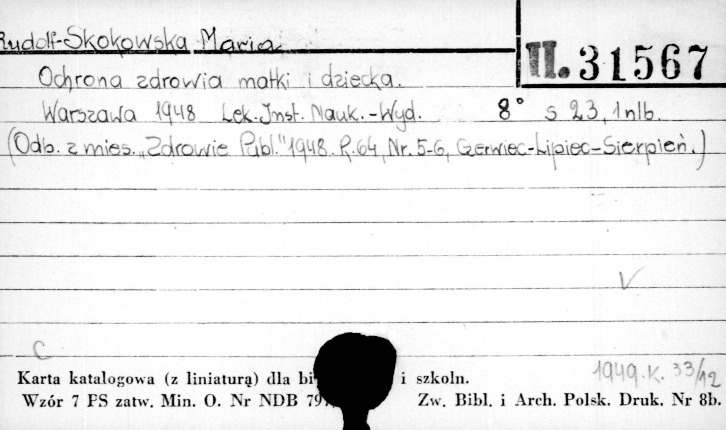 Rudolf-Skokowska Maria.
II. 31567
Ochrona zdrowia matki i dziecka.
Warszawa 1948 Lek. Inst. Nauk.-Wyd. 8° s 23, 1 nlb.
(Odb. z mies. „Zdrowie Publ." 1948. R. 64, Nr. 5-6, Czerwiec-Lipiec-Sierpień.)
V
C
1949. K. 33/12
Karta katalogowa (z liniaturą) dla bi i szkoln.
Wzór 7 PS zatw. Min. O. Nr NDB 79 Zw. Bibl. i Arch. Polsk. Druk. Nr 8b.